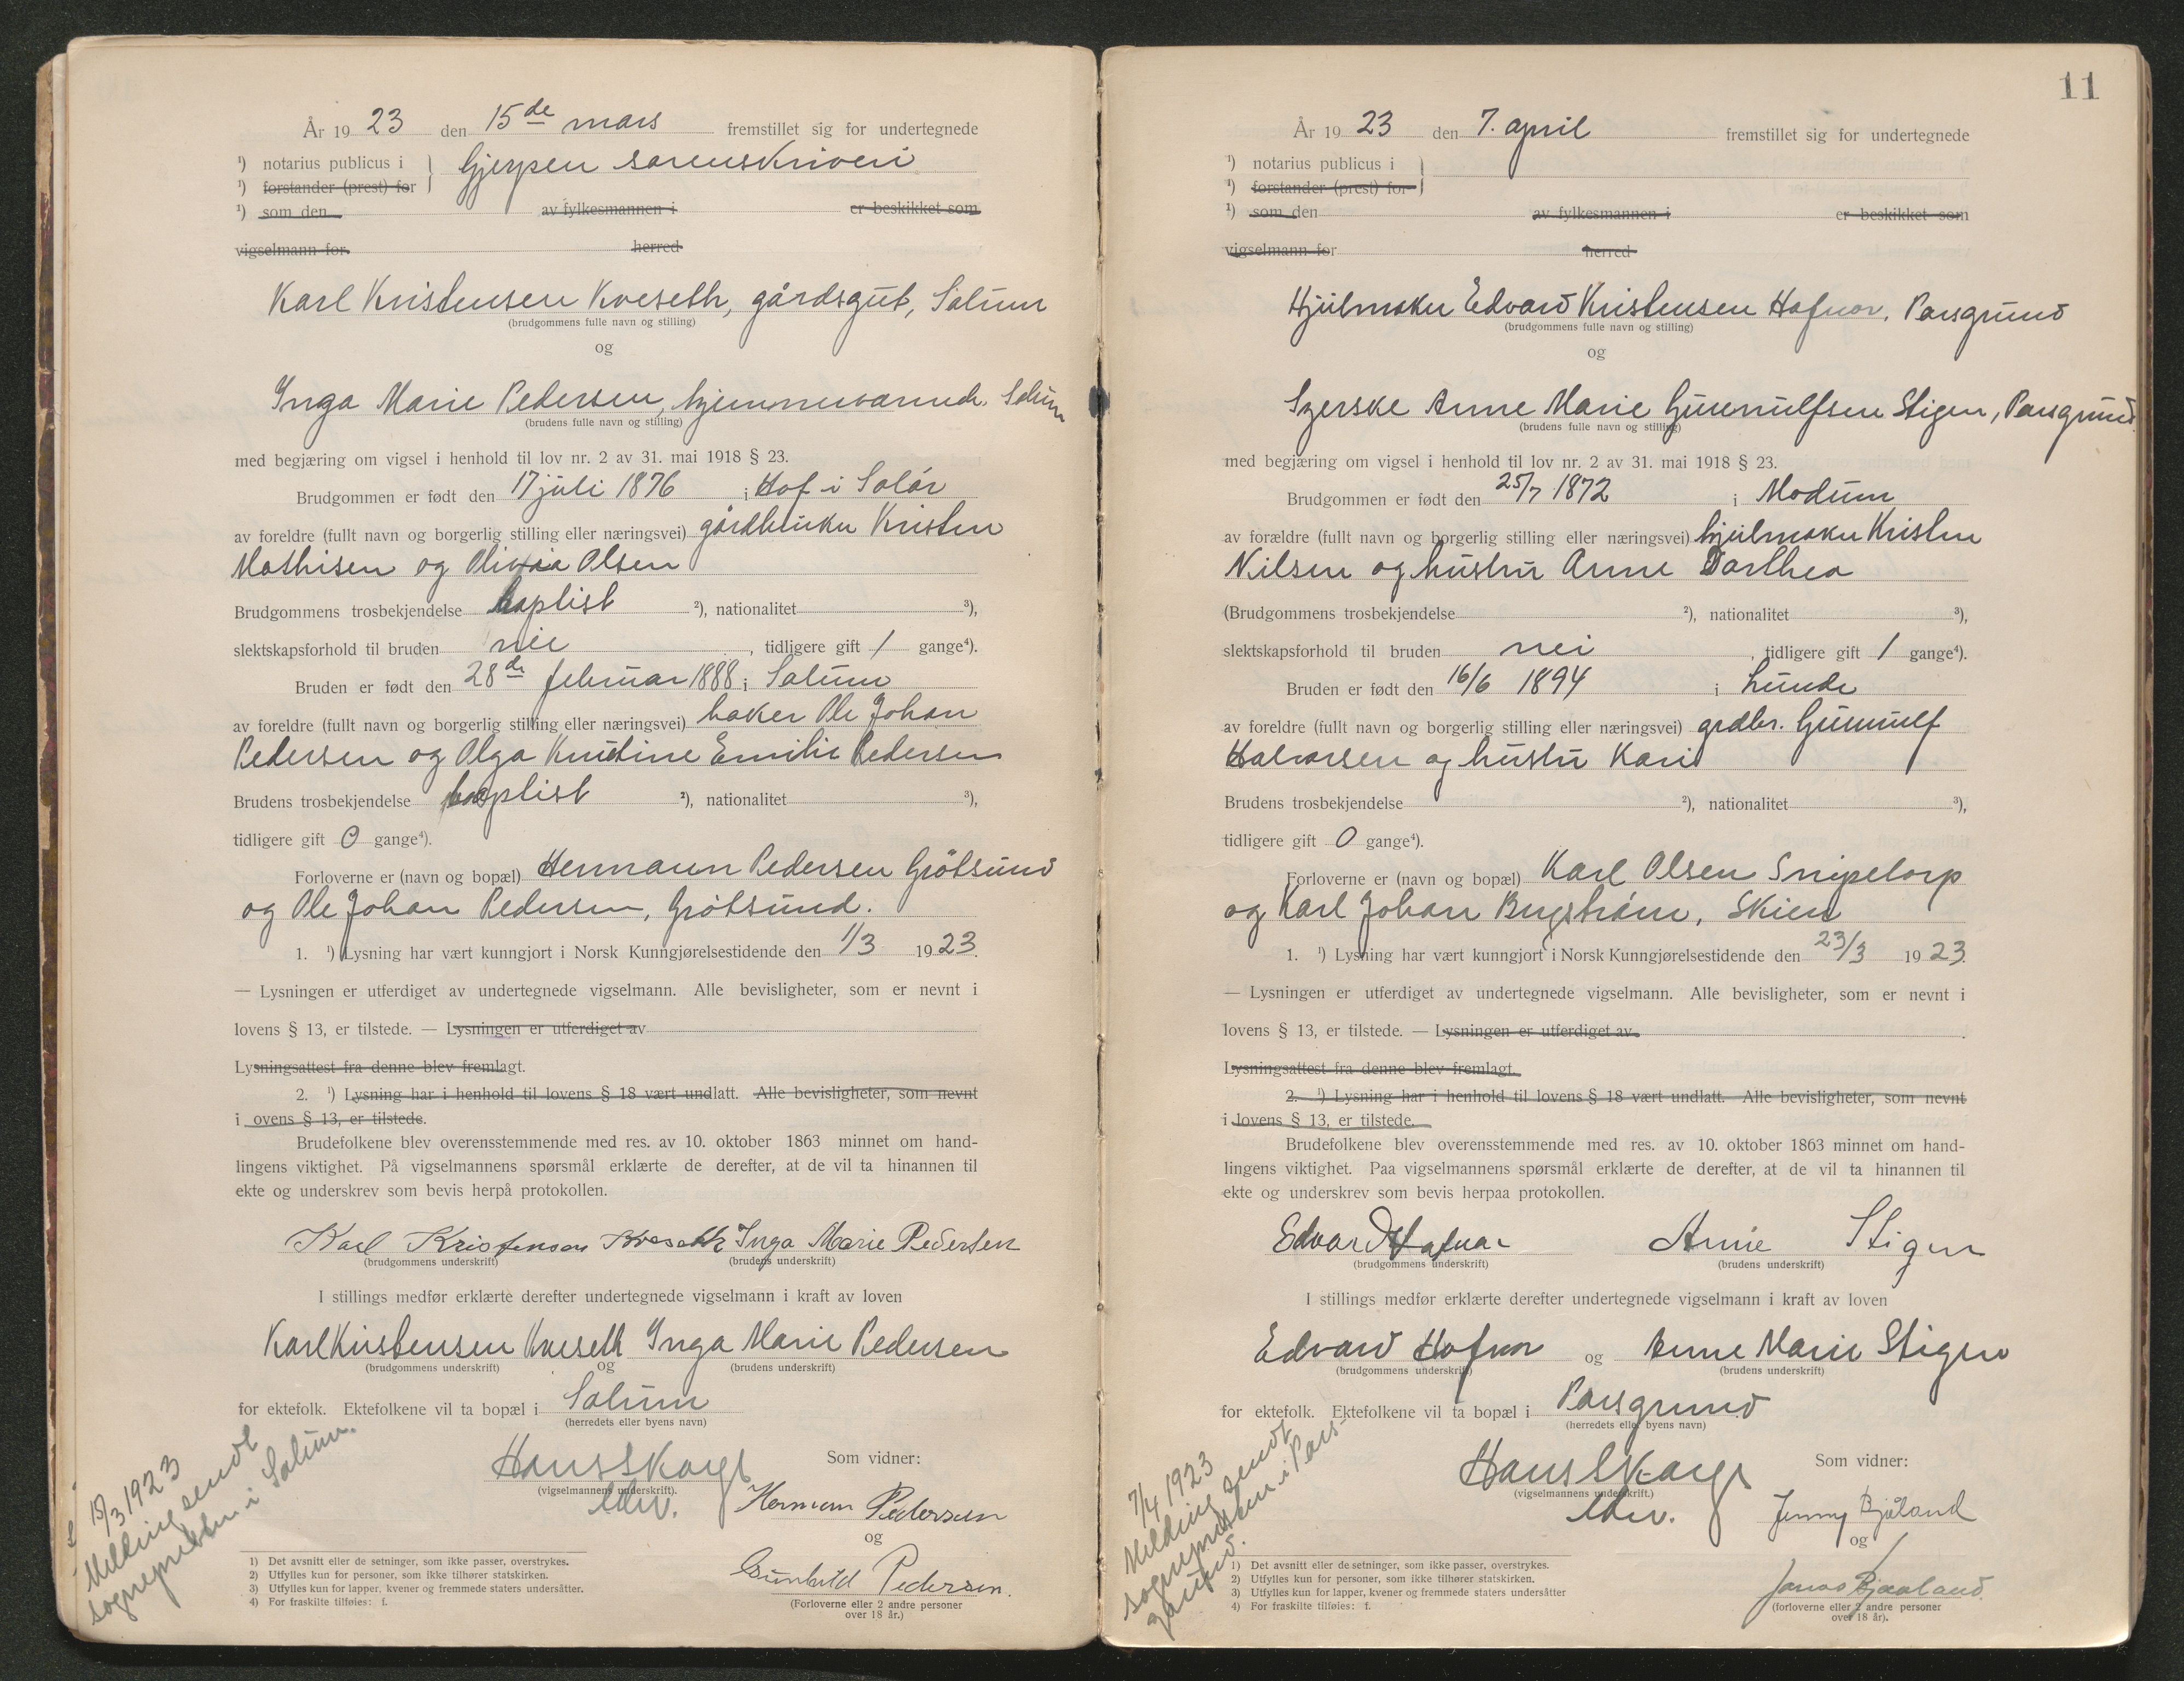 År 19 23 den 15de mars fremstillet sig for undertegnede
¹) notarius publicus i } Gjerpen sorenskriveri
¹) forstander (prest) for
¹) som den av fylkesmannen i er beskikket som
vigselmann for herred
Karl Kristensen Kveseth, gårdsgut, Solum
(brudgommens fulle navn og stilling)
og
Inga Marie Pedersen, hjemmeværende, Solum
(brudens fulle navn og stilling)
med begjæring om vigsel i henhold til lov nr. 2 av 31. mai 1918 § 23.
Brudgommen er født den 17 juli 1876 i Hof i Solør
av foreldre (fullt navn og borgerlig stilling eller næringsvei) gårdbruker Kristen
Mathisen og Olivia Olsen
Brudgommens trosbekjendelse baptist ²), nationalitet ³),
slektskapsforhold til bruden nei, tidligere gift 1 gange⁴).
Bruden er født den 28de februar 1888 i Solum
av foreldre (fullt navn og borgerlig stilling eller næringsvei) baker Ole Johan
Pedersen og Olga Kristine Emilie Pedersen
Brudens trosbekjendelse baptist ²), nationalitet ³),
tidligere gift 0 gange⁴).
Forloverne er (navn og bopæl) Hermann Pedersen Grötsund
og Ole Johan Pedersen, Grötsund.
1. ¹) Lysning har vært kunngjort i Norsk Kunngjørelsestidende den 1/3 1923.
— Lysningen er utferdiget av undertegnede vigselmann. Alle bevisligheter, som er nevnt i
lovens § 13, er tilstede. — Lysningen er utferdiget av
Lysningsattest fra denne blev fremlagt.
2. ¹) Lysning har i henhold til lovens § 18 vært undlatt. Alle bevisligheter, som nevnt
i ovens § 13, er tilstede.
Brudefolkene blev overensstemmende med res. av 10. oktober 1863 minnet om hand-
lingens viktighet. På vigselmannens spørsmål erklærte de derefter, at de vil ta hinannen til
ekte og underskrev som bevis herpå protokollen.
Karl Kristensen Kveseth Inga Marie Pedersen
(brudgommens underskrift) (brudens underskrift)
I stillings medfør erklærte derefter undertegnede vigselmann i kraft av loven
Karl Kristensen Kveseth Inga Marie Pedersen
(brudgommens underskrift) og (brudens underskrift)
for ektefolk. Ektefolkene vil ta bopæl i Solum
(herredets eller byens navn)
Hans Skarge Som vidner:
(vigselmannens underskrift).
Herman Pedersen
og
Gunhild Pedersen.
(Forloverne eller 2 andre personer
over 18 år.)
15/3 1923
Melding sendt
sognepresten i Solum.
1) Det avsnitt eller de setninger, som ikke passer, overstrykes.
2) Utfylles kun for personer, som ikke tilhører statskirken.
3) Utfylles kun for lapper, kvener og fremmede staters undersåtter.
4) For fraskilte tilføies: f.
11
År 19 23 den 7. april fremstillet sig for undertegnede
¹) notarius publicus i }
¹) forstander (prest) for
¹) som den av fylkesmannen i er beskikket som
vigselmann for herred
Hjulmaker Edvard Kristensen Hafnor, Porsgrund
(brudgommens fulle navn og stilling)
og
Syerske Anne Marie Gunnulfsen Stigen, Porsgrund.
(brudens fulle navn og stilling)
med begjæring om vigsel i henhold til lov nr. 2 av 31. mai 1918 § 23.
Brudgommen er født den 25/7 1872 i Modum
av forældre (fullt navn og borgerlig stilling eller næringsvei) hjulmaker Kristen
Nilsen og hustru Anne Dorthea
(Brudgommens trosbekjendelse ²), nationalitet ³),
slektskapsforhold til bruden nei, tidligere gift 1 gange⁴).
Bruden er født den 16/6 1894 i Lunde
av foreldre (fullt navn og borgerlig stilling eller næringsvei) grdbr. Gunnulf
Halvorsen og hustru Kari
Brudens trosbekjendelse ²), nationalitet ³),
tidligere gift 0 gange⁴).
Forloverne er (navn og bopæl) Karl Olsen Snipetorp
og Karl Johan Bergström, Skien
1. ¹) Lysning har vært kunngjort i Norsk Kunngjørelsestidende den 23/3 1923.
— Lysningen er utferdiget av undertegnede vigselmann. Alle bevisligheter, som er nevnt i
lovens § 13, er tilstede. — Lysningen er utferdiget av
Lysningsattest fra denne blev fremlagt.
2. ¹) Lysning har i henhold til lovens § 18 vært undlatt. Alle bevisligheter, som nevnt
i lovens § 13, er tilstede.
Brudefolkene blev overensstemmende med res. av 10. oktober 1863 minnet om hand-
lingens viktighet. Paa vigselmannens spørsmål erklærte de derefter, at de vil ta hinannen til
ekte og underskrev som bevis herpaa protokollen.
Edvard Hafnor Anne Stigen
(brudgommens underskrift) (brudens underskrift)
I stillings medfør erklærte derefter undertegnede vigselmann i kraft av loven
Edvard Hafnor og Anne Marie Stigen
(brudgommens underskrift) (brudens underskrift)
for ektefolk. Ektefolkene vil ta bopæl i Porsgrund
(herredets eller byens navn)
Hans Skarge Som vidner:
(vigselmannens underskrift.)
Jenny Bjåland
og
Bjaaland
(forloverne eller 2 andre personer
over 18 år).
7/4 1923
Melding sendt
sognepresten i Pors-
grund.
1) Det avsnitt eller de setninger, som ikke passer, overstrykes.
2) Utfylles kun for personer, som ikke tilhører statskirken.
3) Utfylles kun for lapper, kvener og fremmede staters undersåtter
4) For fraskilte tilføies: f.